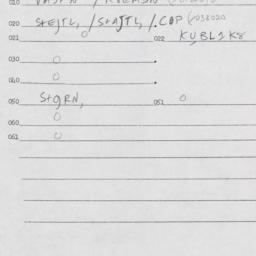 020 StEJTL, /StAJTL, /.COP (2038020
021 0 022 KUBL1K8
030 0 .
040 0 .
050 StgRN, 051 0
060 0
061 0